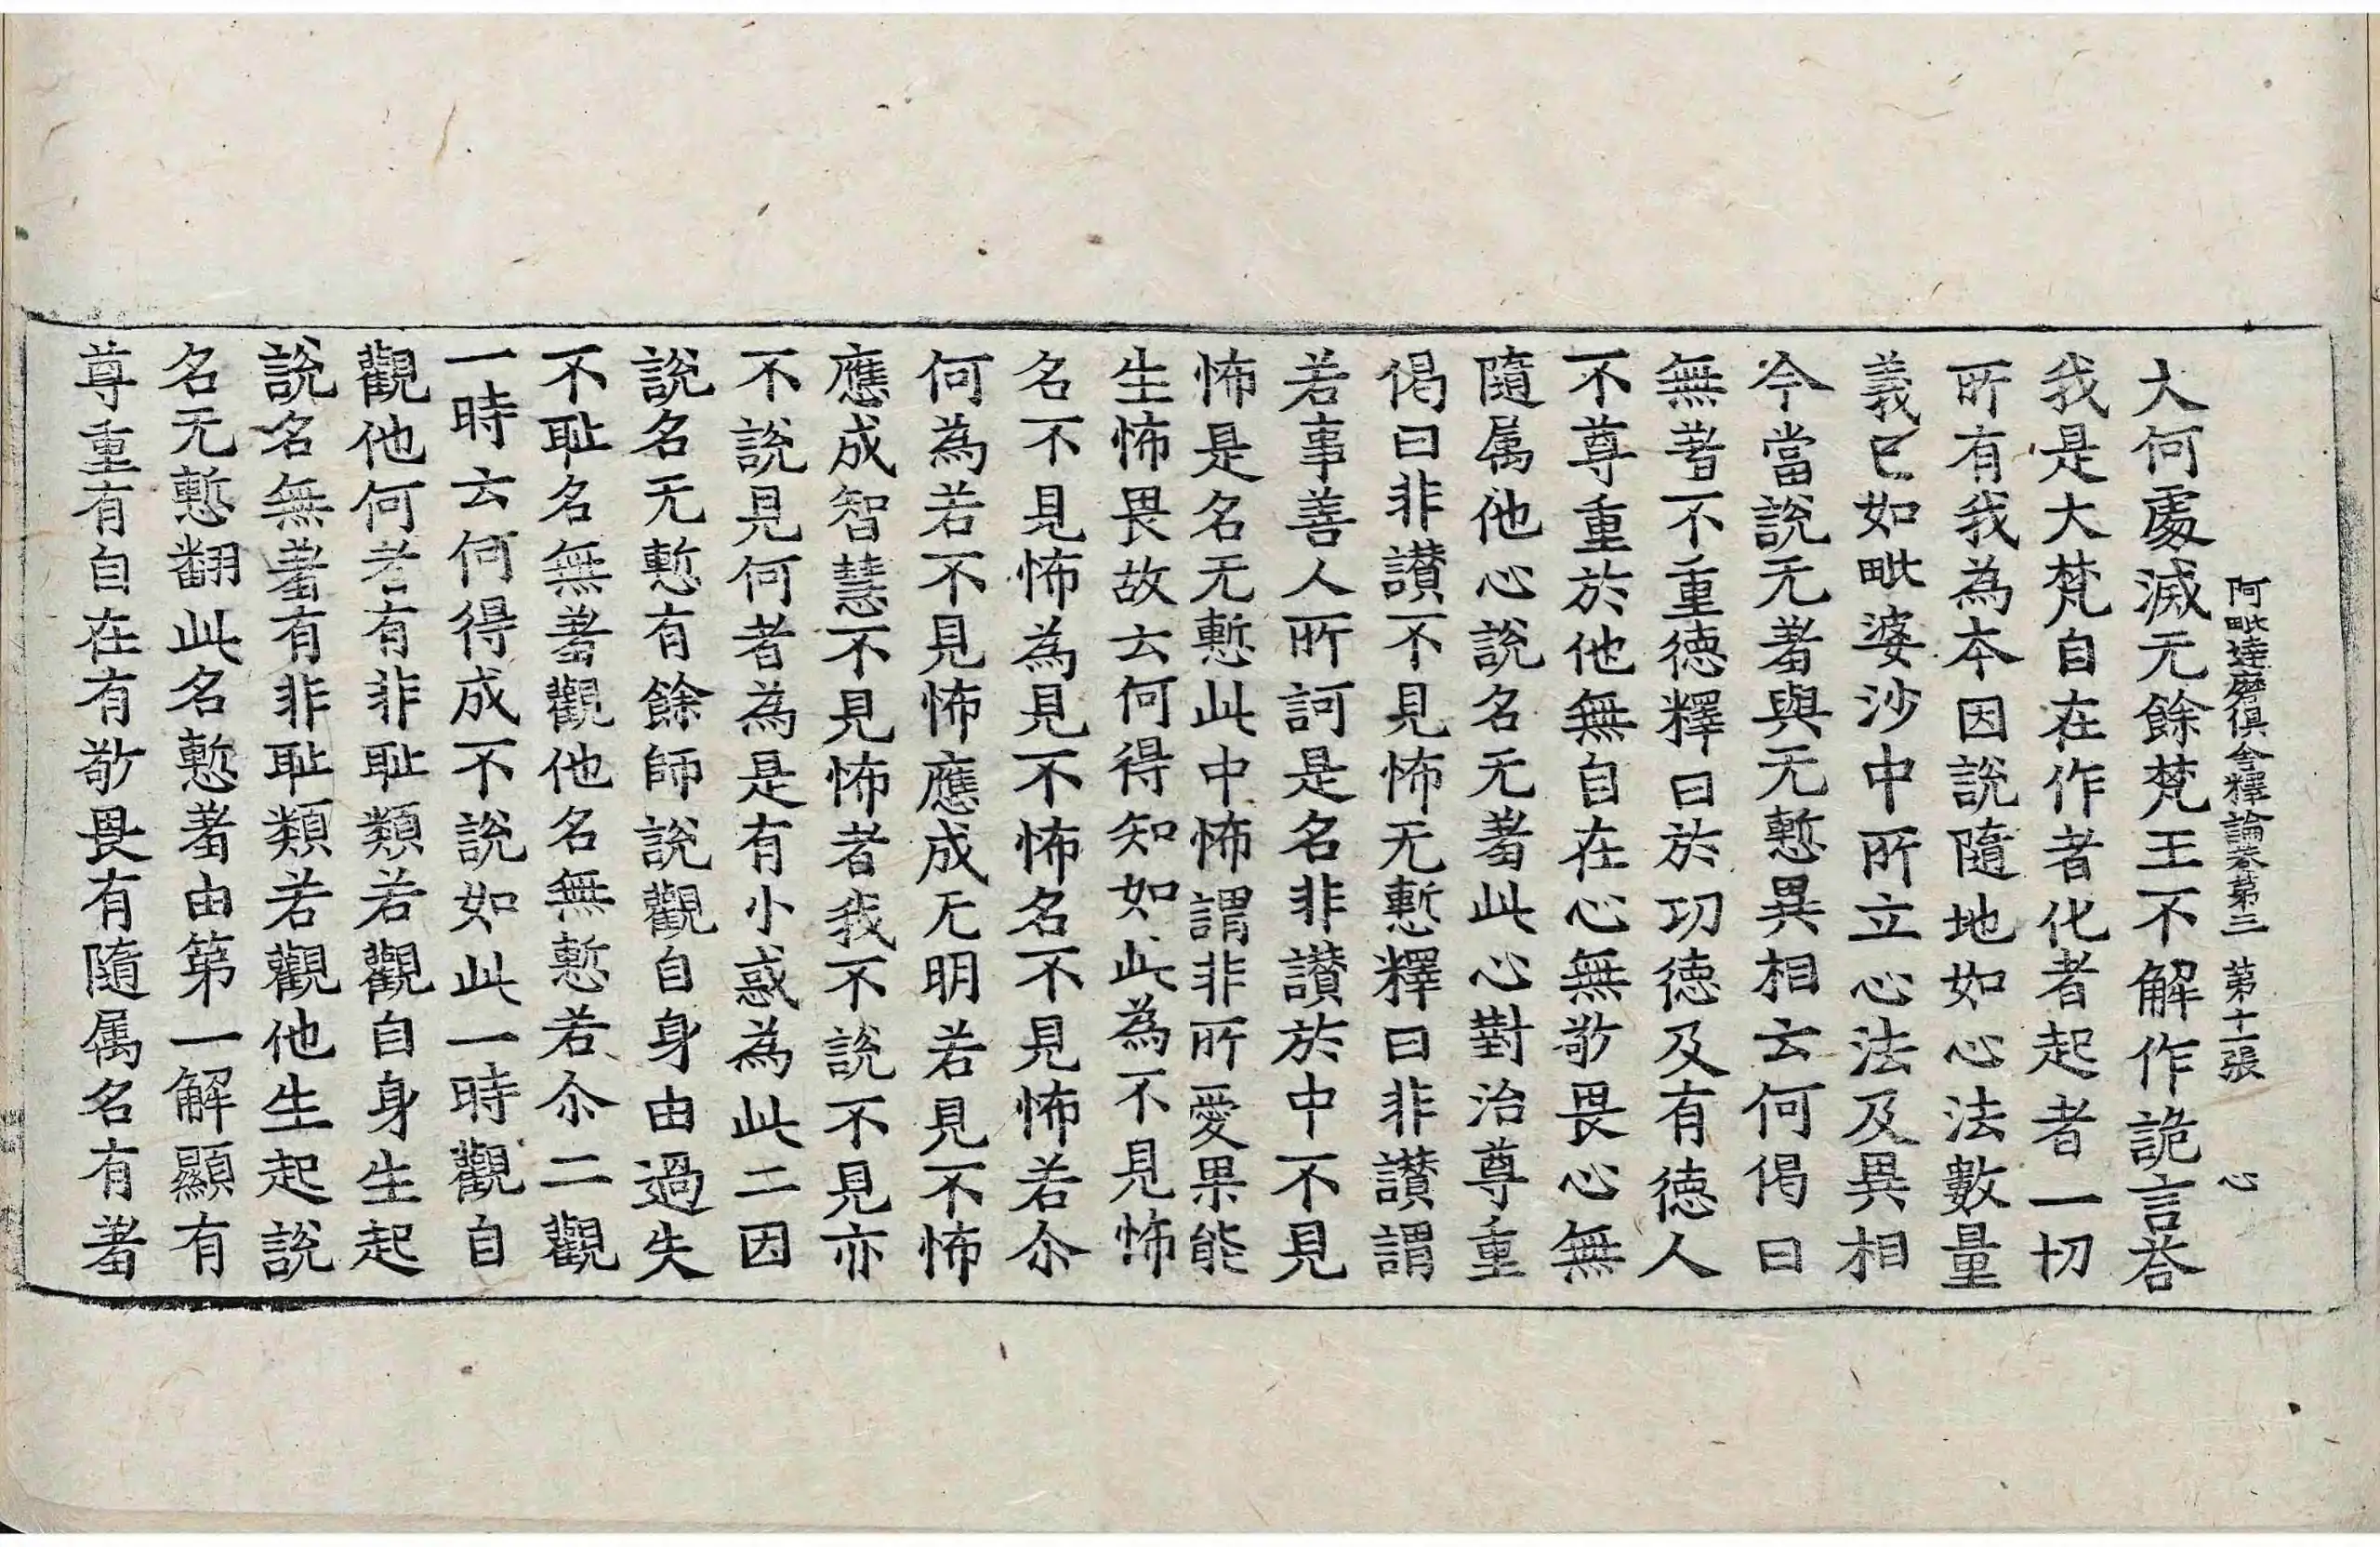 阿毗達磨俱舍釋論卷第三 第十一張 心
大何處滅无餘梵王不解作詭言荅
我是大梵自在作者化者起者一切
所有我為夲因說隨地如心法數量
義已如毗婆沙中所立心法及異相
今當說无羞與无慙異相云何偈曰
無羞不重德釋曰於功德及有德人
不尊重於他無自在心無敬畏心無
隨属他心說名无羞此心對治尊重
偈曰非讃不見怖无慙釋曰非讃謂
若事善人所訶是名非讃於中不見
怖是名无慙此中怖謂非所愛果能
生怖畏故云何得知如此為不見怖
名不見怖為見不怖名不見怖若尒
何為若不見怖應成无明若見不怖
應成智慧不見怖者我不說不見亦
不說見何者為是有小惑為此二因
說名无慙有餘師說觀自身由過失
不耻名無羞觀他名無慙若尒二觀
一時云何得成不說如此一時觀自
觀他何者有非耻類若觀自身生起
說名無羞有非耻類若觀他生起說
名无慙翻此名慙羞由第一解顯有
尊重有自在有敬畏有隨属名有羞